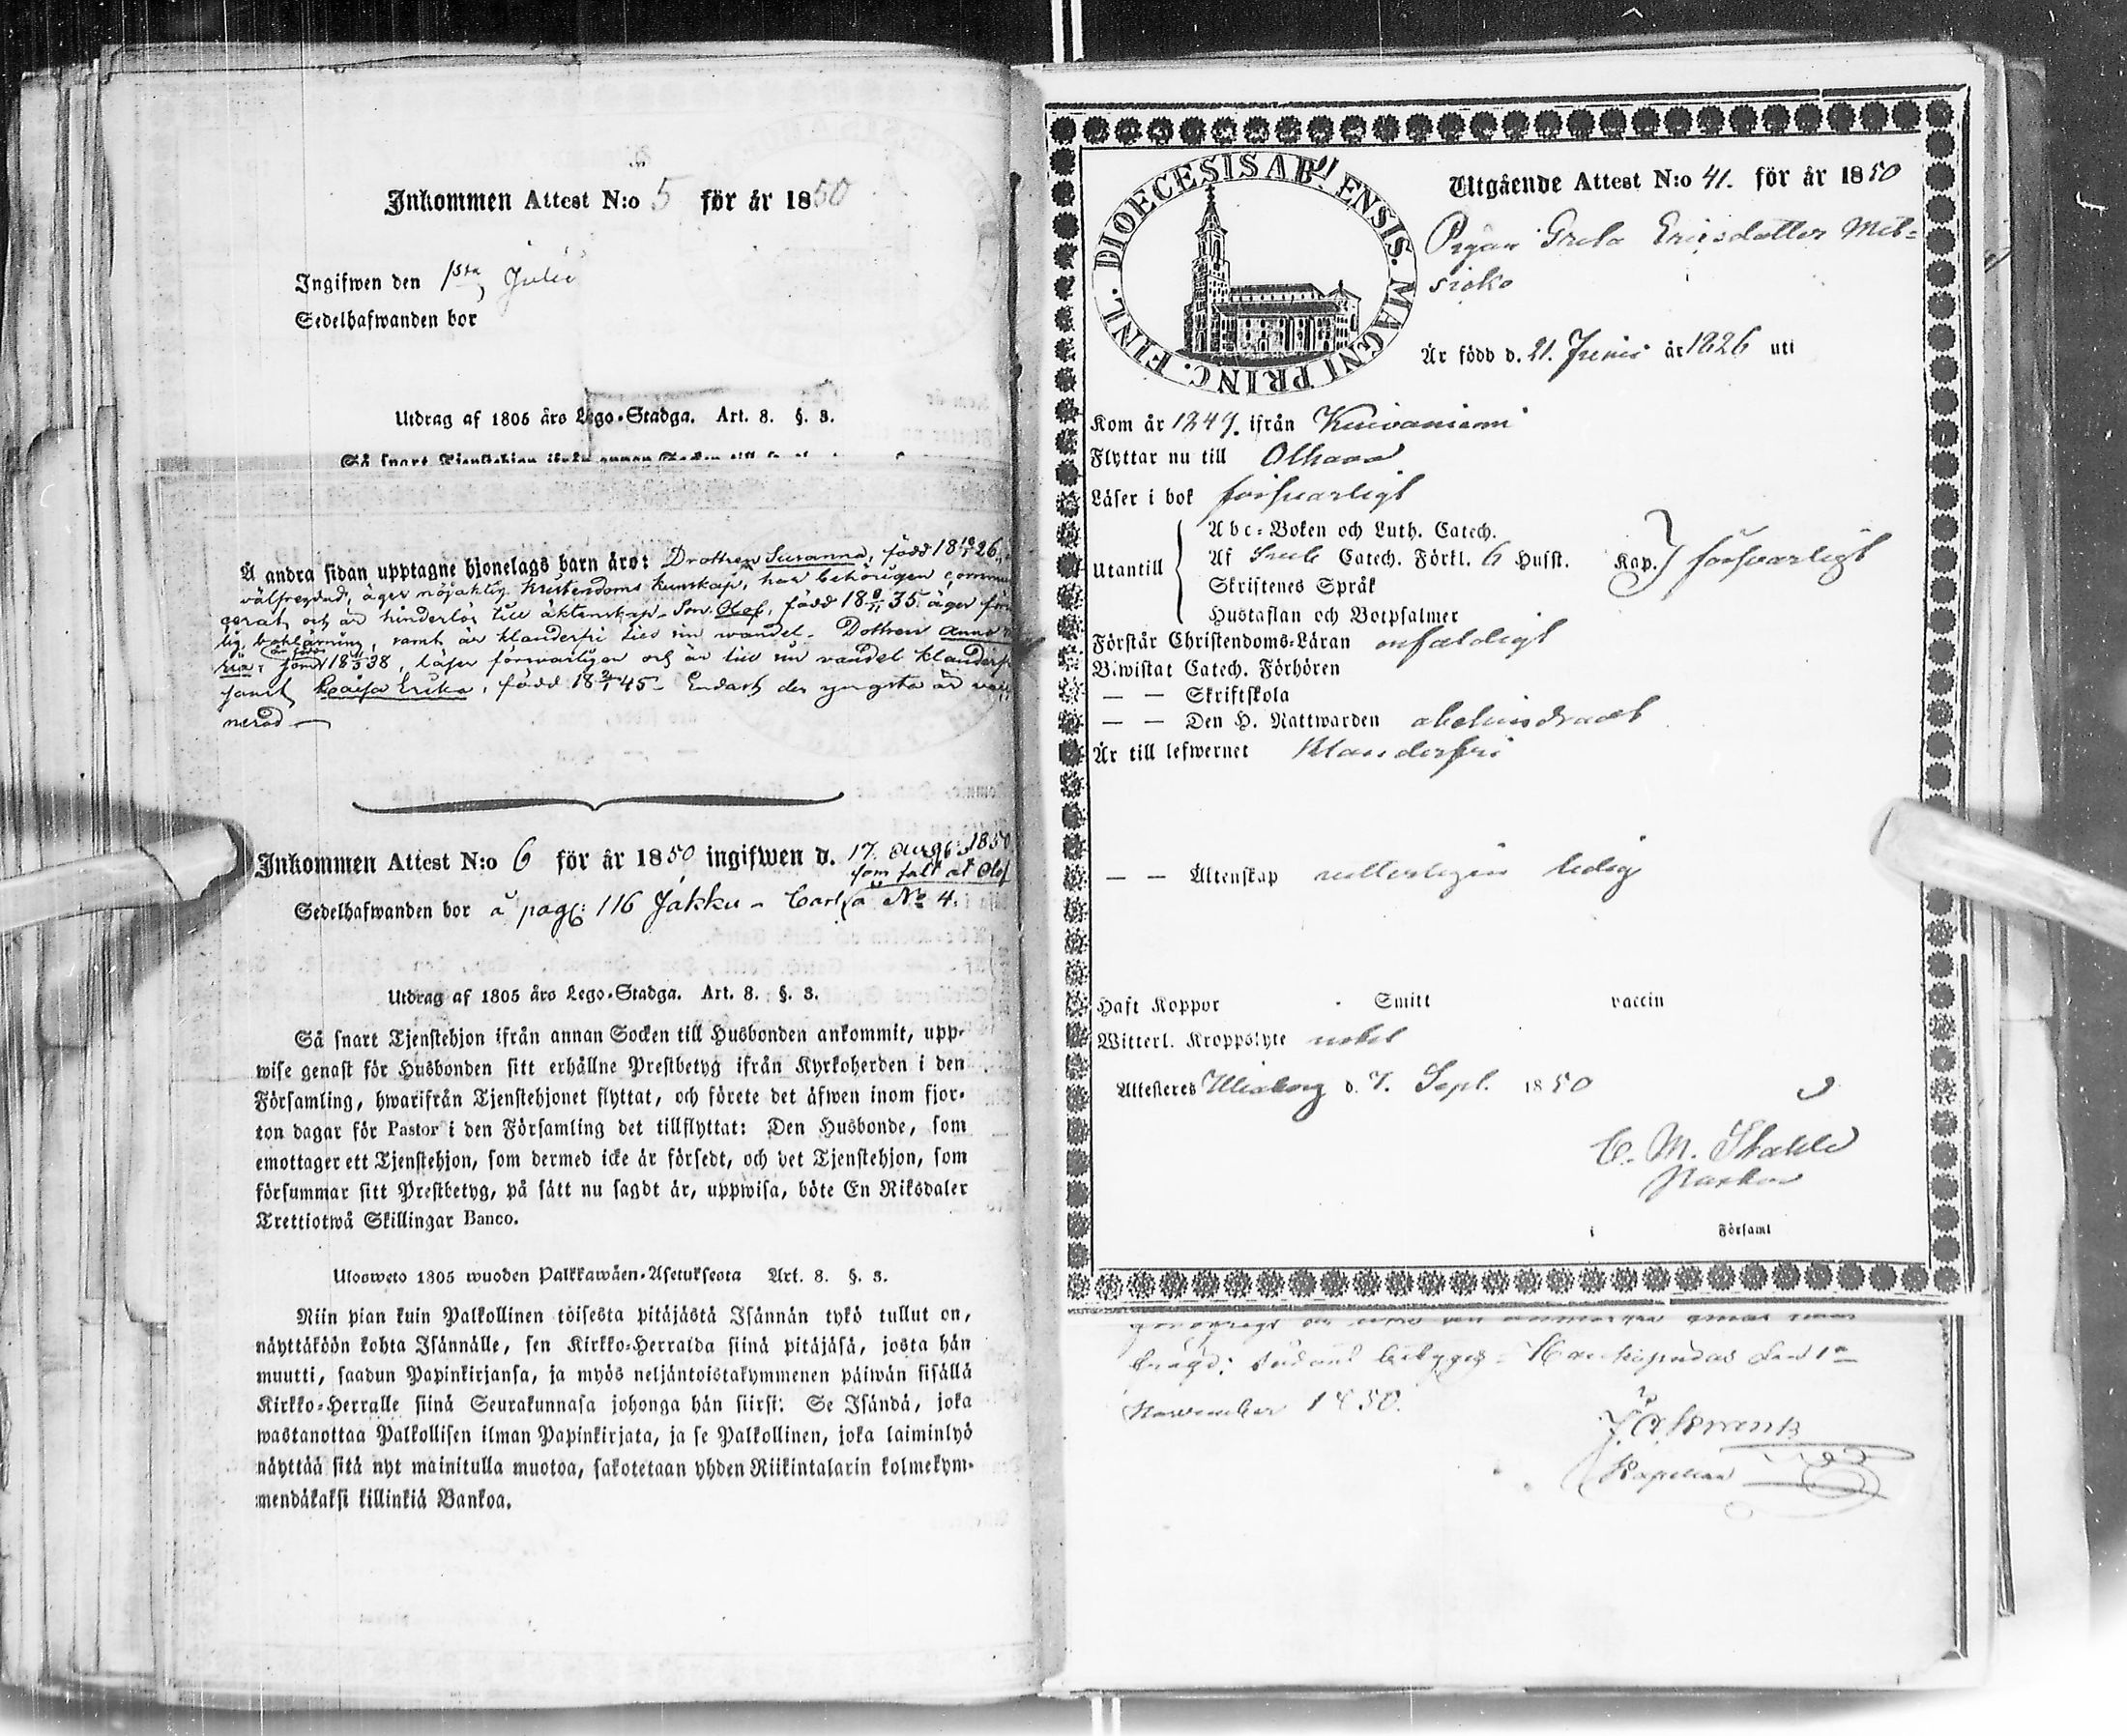 Inkommen Attest N:o 5 för år 1850
Ingifwen den 1sta Julii
Sedelhafwanden bor
Utdrag af 1805 års Lego-Stadga. Art. 8. §. 3.
Så snart Tjenstehjon ifrån annan Socken till
Å andra sidan upptagne hjonelags barn äro: Dottren Susanna, född 18 26,
välfreydad, äger nöjaktig Kristendoms kunskap, har behörigen commu
cerat och är hinderlös till äktenskap. Son Olof, född 18 35. äger för
lig boklärning, samt är klanderfri till sin wandel. Dottren Anna
ria, född 18 38, läser förswarligen och är till sin vandel klanderf
samt Caisa Erika, född 18 45. Endast den yngsta är vacc
nerad
Inkommen Attest N:o 6 för år 1850 ingifwen d. 17. Aug. 1850
som fält at Olof
Sedelhafwanden bor å pag: 116 Jakku - Carlsa No 4.
Utdrag af 1805 års Lego-Stadga. Art. 8. §. 3.
Så snart Tjenstehjon ifrån annan Socken till Husbonden ankommit, upp-
wise genast för Husbonden sitt erhållne Prestbetyg ifrån Kyrkoherden i den
Församling, hwarifrån Tjenstehjonet flyttat, och förete det äfwen inom fjor-
ton dagar för Pastor i den Församling det tillflyttat: Den Husbonde, som
emottager ett Tjenstehjon, som dermed icke är försedt, och det Tjenstehjon, som
försummar sitt Prestbetyg, på sätt nu sagdt är, uppwisa, böte En Riksdaler
Trettiotwå Skillingar Banco.
Ulosweto 1805 wuoden Palkkawäen-Asetuksesta Art. 8. §. 3.
Niin pian kuin Palkollinen toisesta pitäjästä Isännän tykö tullut on,
näyttäköön kohta Isännälle, sen Kirkko-Herralda siinä pitäjäsä, josta hän
muutti, saadun Papinkirjansa, ja myös neljäntoistakymmenen päiwän sisällä
Kirkko-Herralle siinä Seurakunnasa johonga hän siirsi: Se Isändä, joka
wastanottaa Palkollisen ilman Papinkirjata, ja se Palkollinen, joka laiminlyö
näyttää sitä nyt mainitulla muotoa, sakotetaan yhden Riikintalarin kolmekym-
mendäkaksi killinkiä Bankoa.
DIOECESIS ABOENSIS. MAGNI PRINC. FINL.
Utgående Attest N:o 41. för år 1850
Pigan Greta Ericsdotter Mat-
sicko
Är född d. 21. Junii år 1826 uti
Kom år 1849. ifrån Kuivaniemi
Flyttar nu till Olhava
Läser i bok försvarligt
Utantill
Abc-Boken och Luth. Catech.
Af Sveb Catech. Förkl. 6 Hufst. Kap. försvarligt
Skriftenes Språk
Hustaflan och Botpsalmer
Förstår Christendoms-Läran enfaldigt
Biwistat Catech. Förhören
— — Skriftskola
— — Den H. Nattwarden obehindradt
Är till lefwernet Klanderfri
— — Äktenskap veterligen ledig
Haft Koppor Smitt vaccin
Witterl. Kroppslyte intet
Attesteres Uleåborg d. 7. Sept. 1850
C. M. Stahle
Pastor
i Församl
betygas Haukipudas den 1a
November 1850.
J. A. Frantz
Kapellan